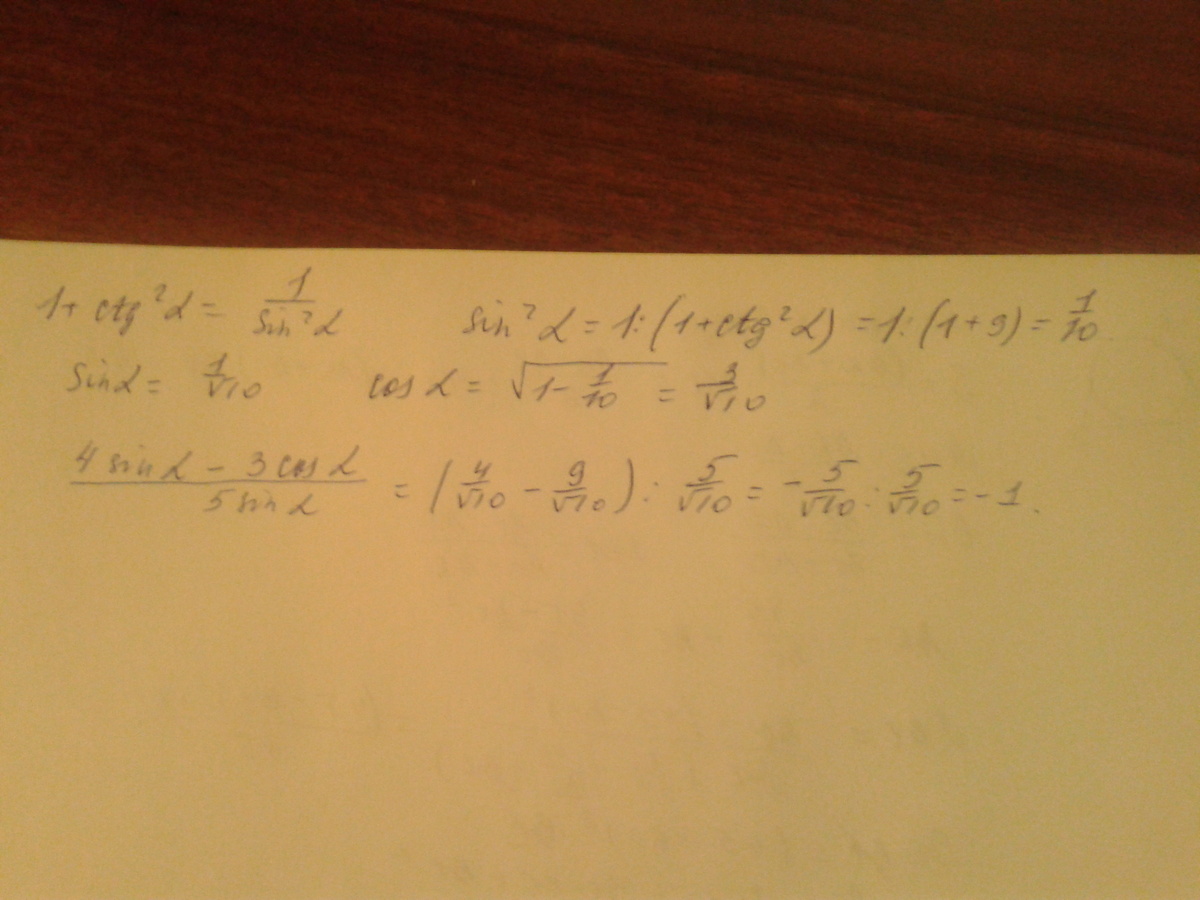 1 + ctg²α = 1/sin²α   sin²α = 1:(1+ctg²α) = 1:(1+9) = 1/10
sinα = 1/√10   cos α = √(1 - 1/10) = 3/√10
(4 sinα - 3 cos α)/(5 sin α) = (4/√10 - 9/√10) : 5/√10 = -5/√10 : 5/√10 = -1.